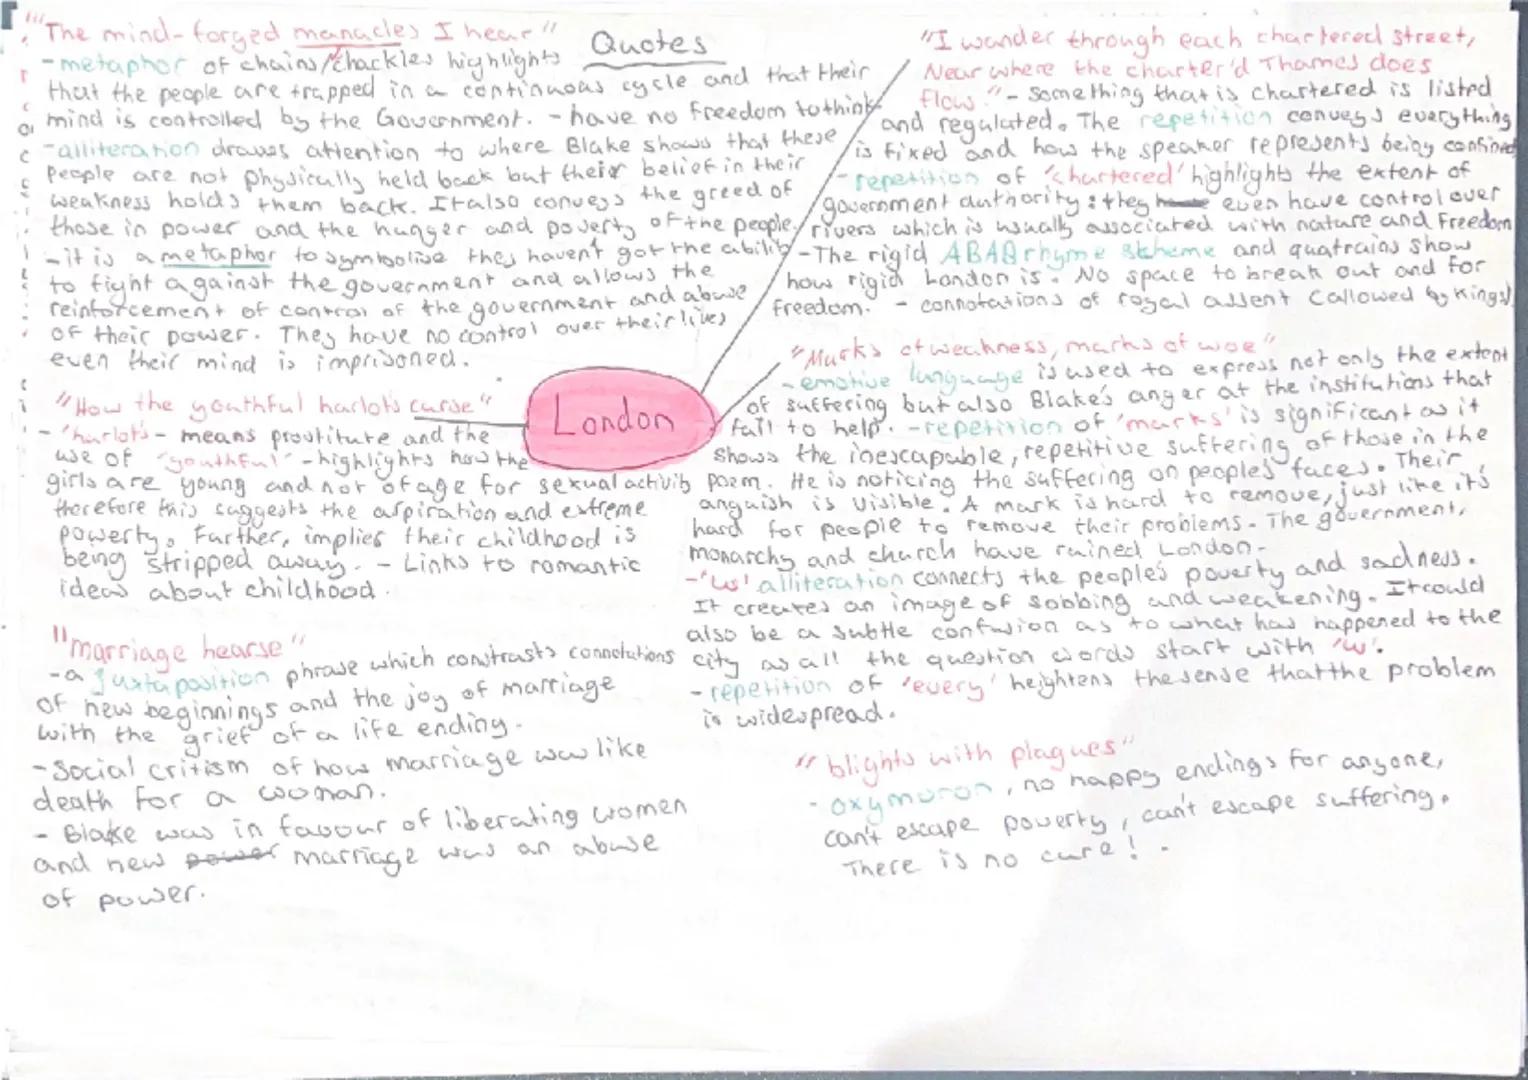 "The mind-forged manacles I hear"
-metaphor of chains/shackles highlights
that the people are trapped in a continuous cycle and that their
mind is controlled by the Government. - have no freedom to think
-alliteration draws attention to where Blake shows that these
people are not physically held back but their belief in their
weakness holds them back. It also conveys the greed of
those in power and the hunger and poverty of the people.
-it is a metaphor to symbolise they havent got the ability
to fight against the government and allows the
reinforcement of control of the government and abuse
of their power. They have no control over their lives
even their mind is imprisoned.
Quotes
"I wander through each chartered street,
Near where the charter'd Thames does
flow." - something that is chartered is listed
and regulated. The repetition conveys everything
is fixed and how the speaker represents being confined
- repetition of 'chartered' highlights the extent of
government authority: they even have control over
rivers which is usually associated with nature and freedom
-The rigid ABAB rhyme scheme and quatrains show
how rigid London is. No space to break out and for
freedom. - connotations of royal assent (allowed by kings)
London
"How the youthful harlots curse"
- 'harlots - means prostitute and the
use of "youthful" - highlights how the
girls are young and not of age for sexual activity
therefore this suggests the aspiration and extreme
powerty. Further, implies their childhood is
being stripped away. - Links to romantic
ideas about childhood.
"Marks of weakness, marks of woe"
-emotive language is used to express not only the extent
of suffering but also Blake's anger at the institutions that
fail to help. -repetition of 'marks' is significant as it
shows the inescapable, repetitive suffering of those in the
poem. He is noticing the suffering on peoples faces. Their
anguish is visible. A mark is hard to remove, just like it's
hard for people to remove their problems. The government,
monarchy and church have ruined London.
-'w' alliteration connects the people's poverty and sadness.
It creates an image of sobbing and weakening. It could
also be a subtle confusion as to what has happened to the
city as all the question words start with 'w'.
-repetition of 'every' heightens the sense that the problem
is widespread.
"marriage hearse"
-a juxtaposition phrase which constrasts connotations
of new beginnings and the joy of marriage
with the grief of a life ending.
-Social critism of how marriage was like
death for a woman.
- Blake was in favour of liberating women
and new power marriage was an abuse
of power.
"blights with plagues"
- oxymoron, no happy endings for anyone,
can't escape poverty, can't escape suffering.
There is no cure!.